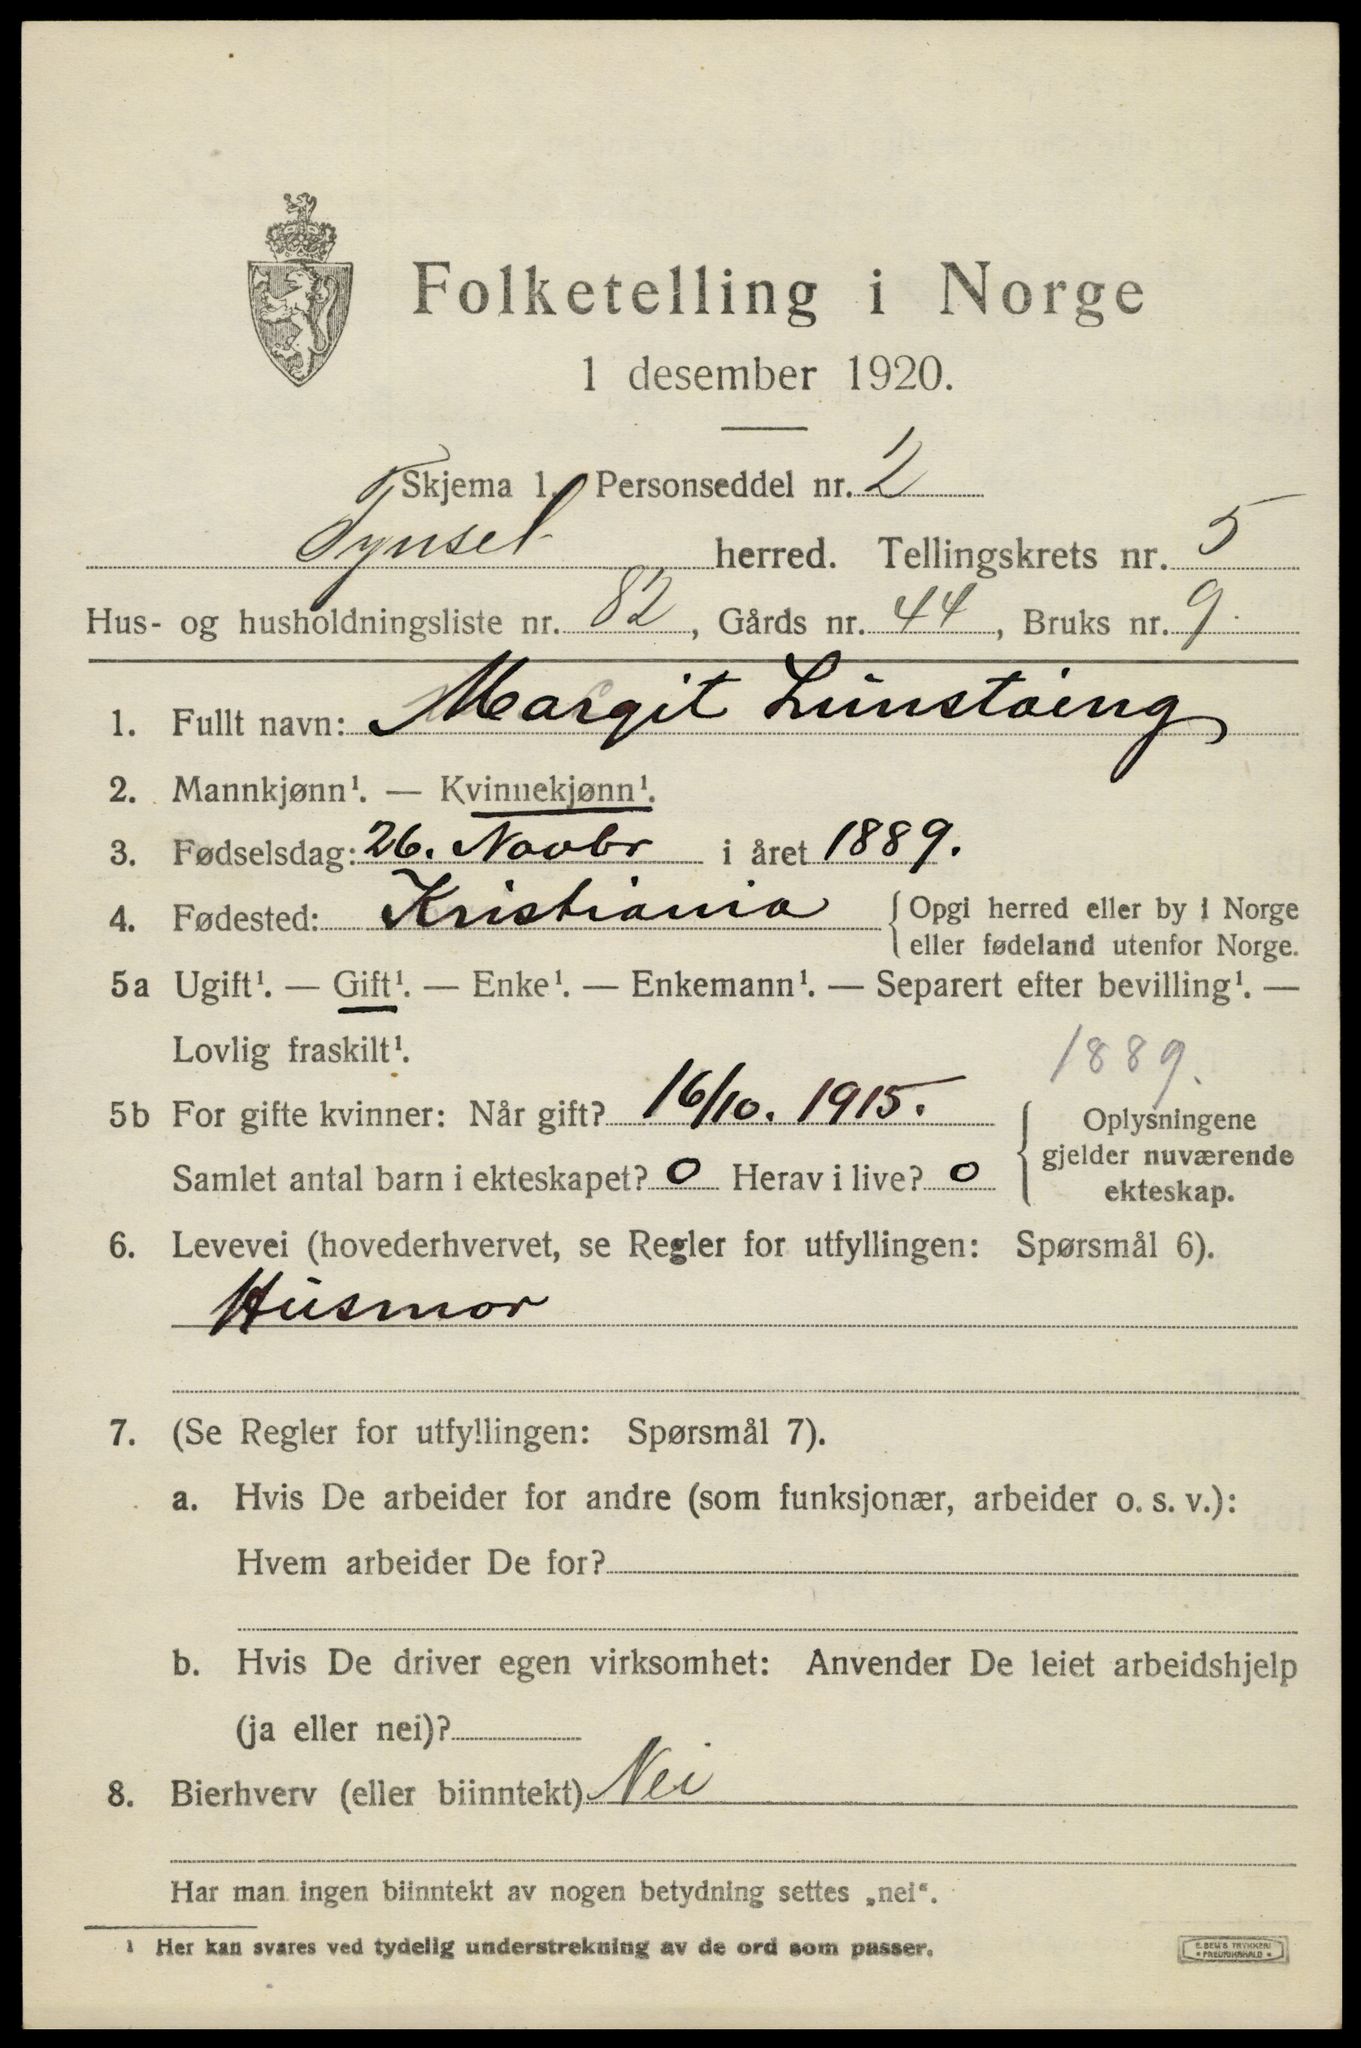 Folketelling i Norge
1 desember 1920.
Skjema 1. Personseddel nr. 2
Tynset herred. Tellingskrets nr. 5
Hus- og husholdningsliste nr. 82, Gårds nr. 44, Bruks nr. 9.
1. Fullt navn: Margit Lunstøing
2. Mannkjønn¹. — Kvinnekjønn¹.
3. Fødselsdag: 26. Novbr i året 1889.
4. Fødested: Kristiania { Opgi herred eller by i Norge
eller fødeland utenfor Norge.
5a Ugift¹. — Gift¹. — Enke¹. — Enkemann¹. — Separert efter bevilling¹. —
Lovlig fraskilt¹.
1889.
5b For gifte kvinner: Når gift? 16/10. 1915. { Oplysningene
gjelder nuværende
Samlet antal barn i ekteskapet? 0 Herav i live? 0
ekteskap.
6. Levevei (hovederhvervet, se Regler for utfyllingen: Spørsmål 6).
Husmor
7. (Se Regler for utfyllingen: Spørsmål 7).
a. Hvis De arbeider for andre (som funksjonær, arbeider o. s. v.):
Hvem arbeider De for?
b. Hvis De driver egen virksomhet: Anvender De leiet arbeidshjelp
(ja eller nei)?
8. Bierhverv (eller biinntekt) Nei
Har man ingen biinntekt av nogen betydning settes „nei“.
¹ Her kan svares ved tydelig understrekning av de ord som passer.
E. SEM'S TRYKKERI
FREDRIKSHALD